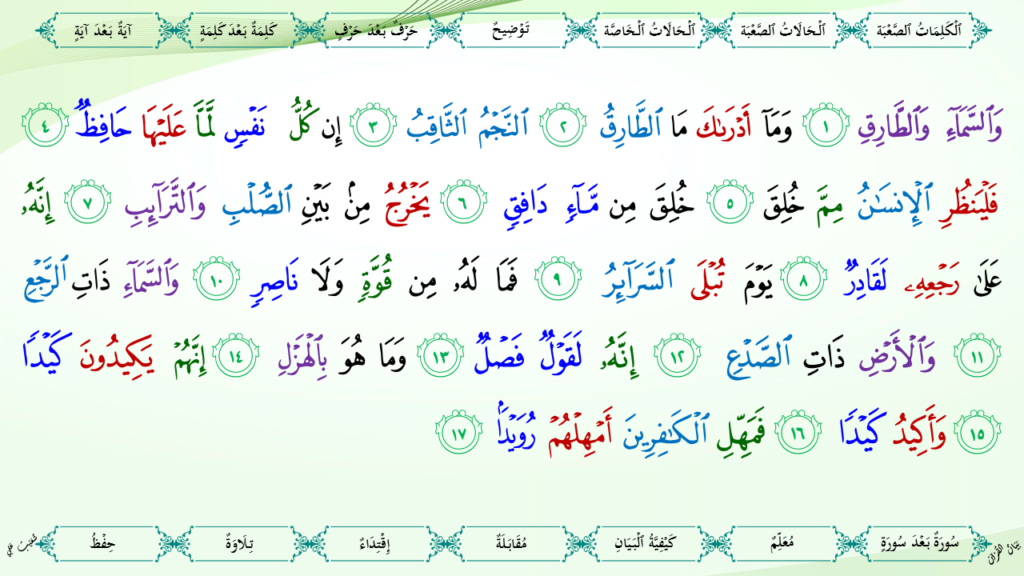 اَلْكَلِمَاتُ الصَّعْبَة اَلْحَالَاتُ الصَّعْبَة اَلْحَالَاتُ الْخَاصَّة تَوْضِيحٌ حَرْفٌ بَعْدَ حَرْفٍ كَلِمَةٌ بَعْدَ كَلِمَةٍ آيَةٌ بَعْدَ آيَةٍ
وَٱلسَّمَآءِ وَٱلطَّارِقِ ١ وَمَآ أَدْرَىٰكَ مَا ٱلطَّارِقُ ٢ ٱلنَّجْمُ ٱلثَّاقِبُ ٣ إِن كُلُّ نَفْسٍ لَّمَّا عَلَيْهَا حَافِظٌ ٤
فَلْيَنظُرِ ٱلْإِنسَـٰنُ مِمَّ خُلِقَ ٥ خُلِقَ مِن مَّآءٍ دَافِقٍ ٦ يَخْرُجُ مِنۢ بَيْنِ ٱلصُّلْبِ وَٱلتَّرَآئِبِ ٧ إِنَّهُۥ
عَلَىٰ رَجْعِهِۦ لَقَادِرٌ ٨ يَوْمَ تُبْلَى ٱلسَّرَآئِرُ ٩ فَمَا لَهُۥ مِن قُوَّةٍ وَلَا نَاصِرٍ ١٠ وَٱلسَّمَآءِ ذَاتِ ٱلرَّجْعِ
١١ وَٱلْأَرْضِ ذَاتِ ٱلصَّدْعِ ١٢ إِنَّهُۥ لَقَوْلٌ فَصْلٌ ١٣ وَمَا هُوَ بِٱلْهَزْلِ ١٤ إِنَّهُمْ يَكِيدُونَ كَيْدًا
١٥ وَأَكِيدُ كَيْدًا ١٦ فَمَهِّلِ ٱلْكَـٰفِرِينَ أَمْهِلْهُمْ رُوَيْدًۢا ١٧
سُورَةٌ بَعْدَ سُورَةٍ مُعَلِّمٌ كَيْفِيَّةُ الْبَيَانِ مُقَابَلَةٌ إِقْتِدَاءٌ تِلَاوَةٌ حِفْظُ
بَيَانُ الْقُرْآنِ